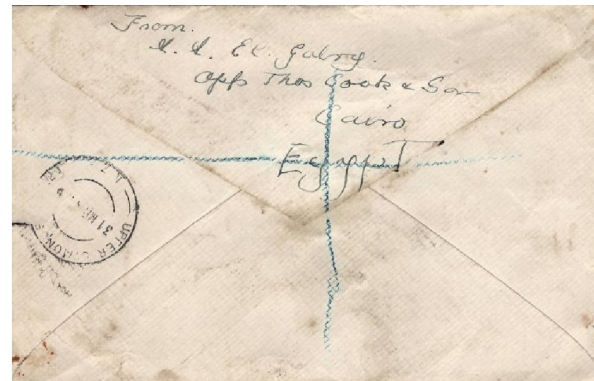 From.
El.
Opp Thos Cook & Son
Cairo
Egypt
UPPER
31